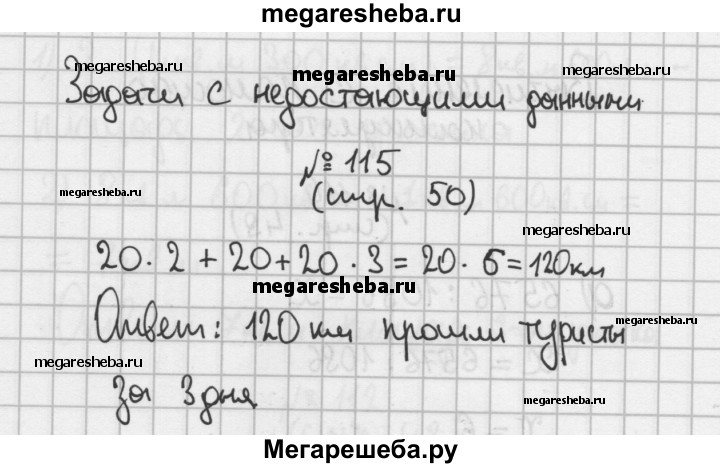 megaresheba.ru
megaresheba.ru megaresheba.ru
megaresheba.ru
Задачи с недостающими данными
№ 115
megaresheba.ru
(стр. 50)
megaresheba.ru
20 · 2 + 20 + 20 · 3 = 20 · 6 = 120 км
megaresheba.ru
Ответ: 120 км прошли туристы
megaresheba.ru megaresheba.ru
за 3 дня
Мегарешеба.ру